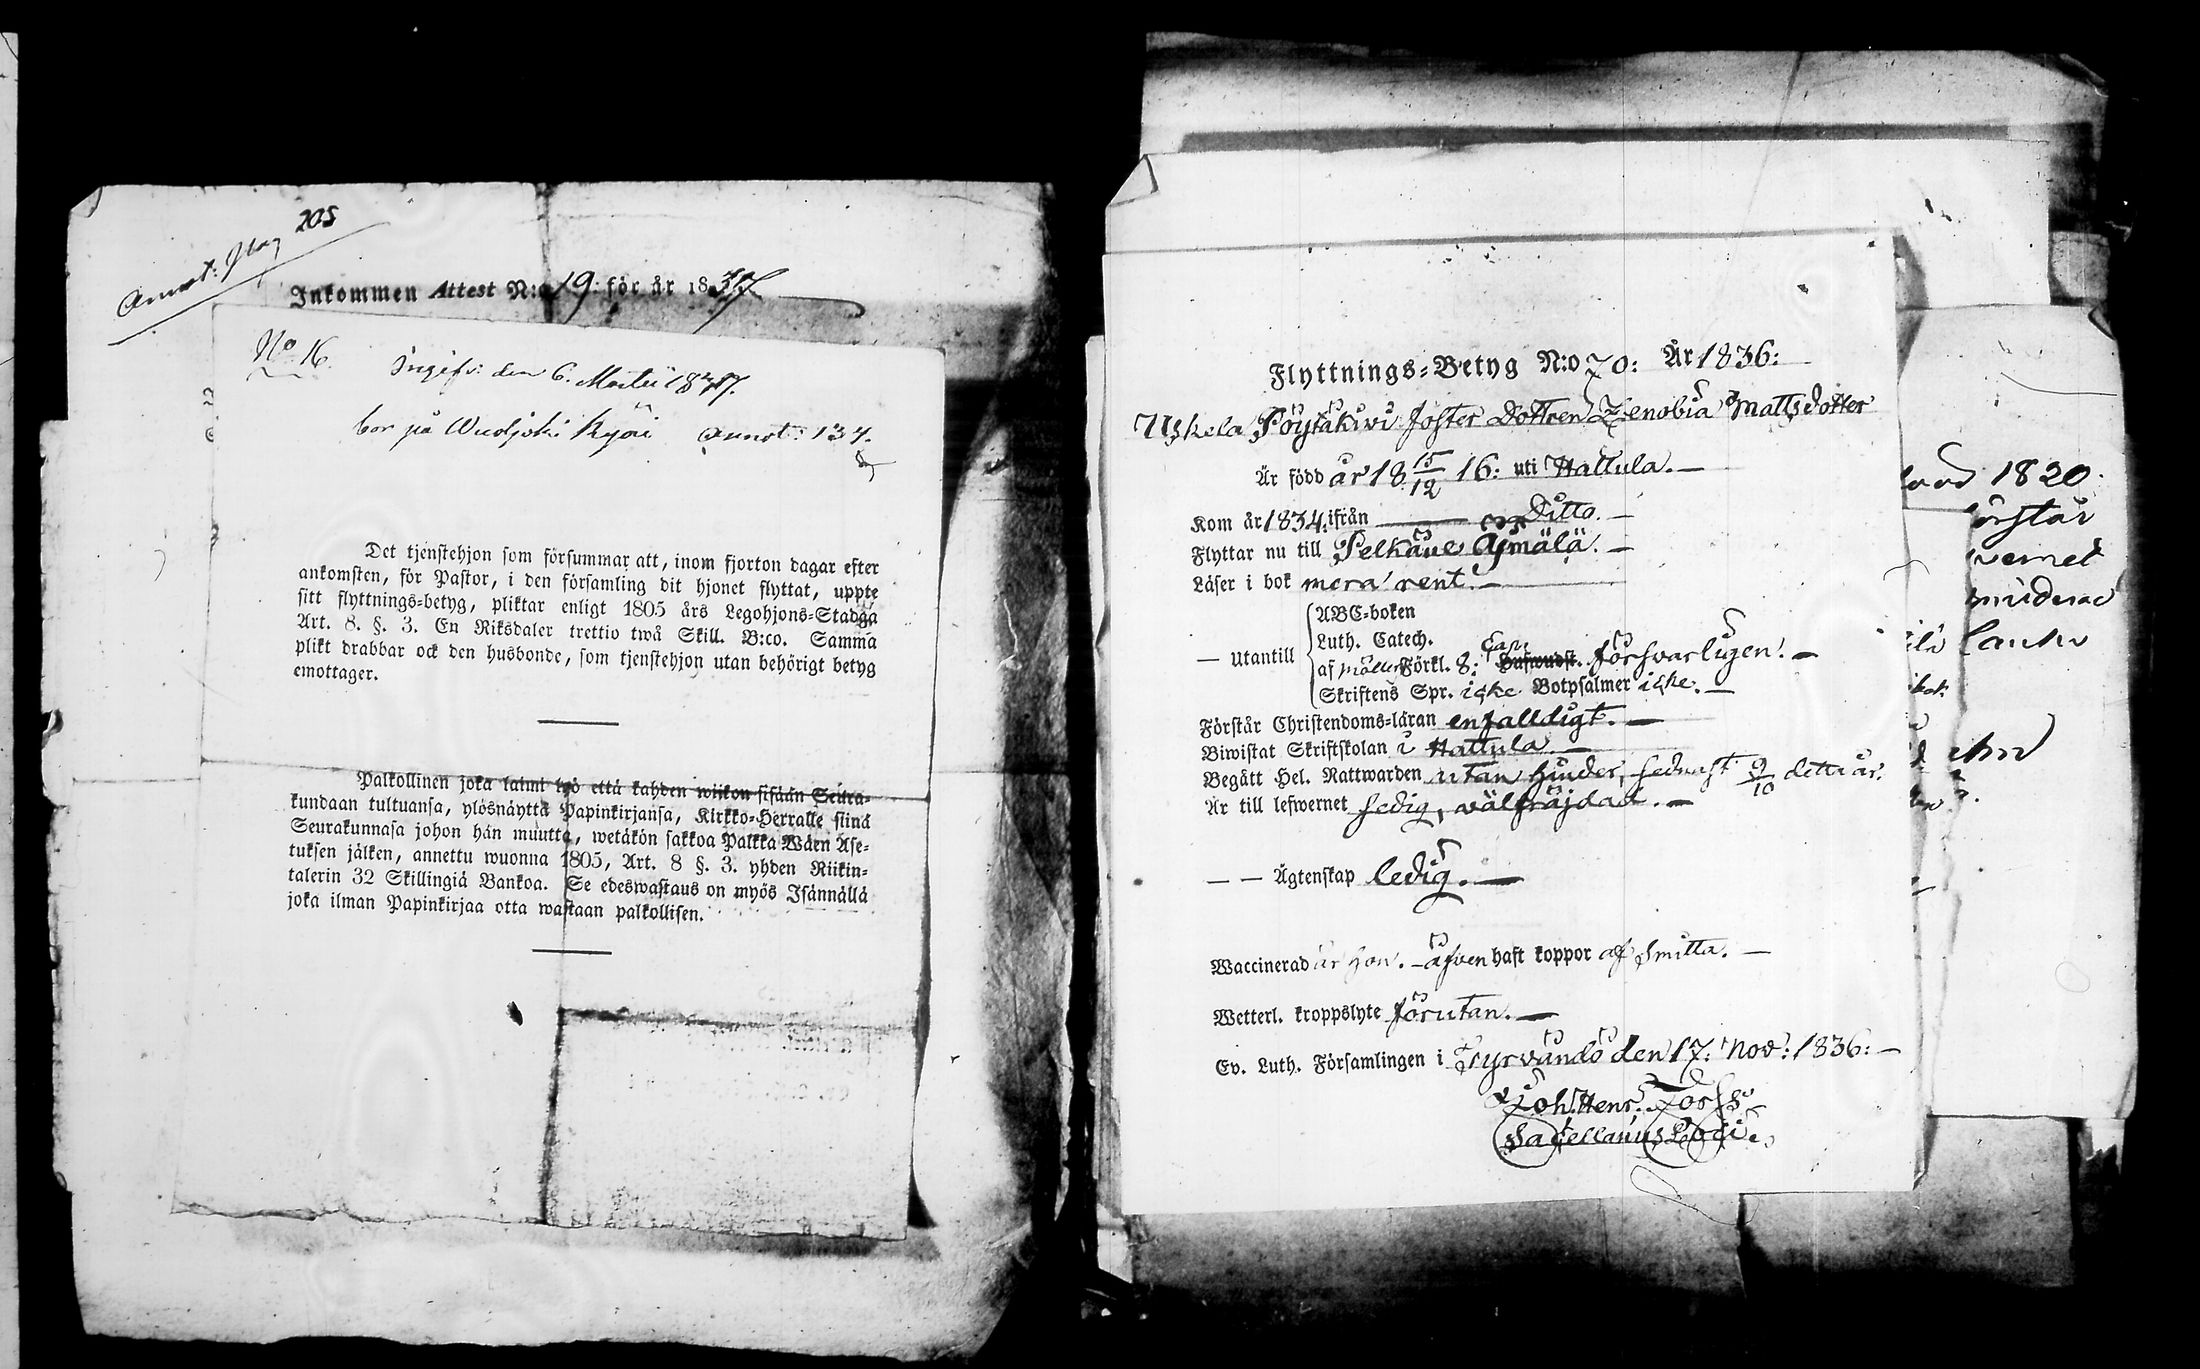 205
Annot: pag
Inkommen Attest N:o 19: för år 1837
No 16.
Ingifv: den 6. Martii 1837.
bor på Wudjoki Kyöri Annot: 134.
Det tjenstehjon som försummar att, inom fjorton dagar efter
ankomsten, för Pastor, i den församling dit hjonet flyttat, uppte
sitt flyttnings-betyg, pliktar enligt 1805 års Legohjons-Stadga
Art. 8. §. 3. En Riksdaler trettio twå Skill. B:co. Samma
plikt drabbar ock den husbonde, som tjenstehjon utan behörigt betyg
emottager.
Palkollinen joka laimi lyö että kahden wiikon sisään Seura-
kundaan tultuansa, ylösnäyttä Papinkirjansa, Kirkko-Herralle siinä
Seurakunnasa johon hän muutta, wetäkön sakkoa Palkka Wäen Ase-
tuksen jälken, annettu wuonna 1805, Art. 8 §. 3. yhden Riikin-
talerin 32 Skillingiä Bankoa. Se edeswastaus on myös Isännällä
joka ilman Papinkirjaa otta wastaan palkollisen.
Flyttnings-Betyg N:o 70: År 1836:
Uskela Pöytäkivi Foster Dottren Zenobia Mattsdotter
Är född år 18 15/12 16: uti Hattula.
Kom år 1834. ifrån Ditto.
Flyttar nu till Pelkäne Äjmälä.
Läser i bok mera rent.
— Utantill
ABC-boken
Luth. Catech.
af Möllers Förkl. 8: Cap. Hufwudst. försvarligen.
Skriftens Spr. icke Botpsalmer icke.
Förstår Christendoms-läran enfalldigt.
Biwistat Skriftskolan i Hattula.
Begått Hel. Nattwarden utan hinder, sednast 9/10 detta år.
Är till lefwernet sedig, wälfräjdad.
— — Ägtenskap ledig.
Waccinerad är hon. — äfven haft koppor af Smitta.
Wetterl. kroppslyte förutan.
Ev. Luth. Församlingen i Tyrvändö den 17: Nov: 1836:
Joh: Henr. Forss
Sacellanus Loci.
1820.
förstår
vernet